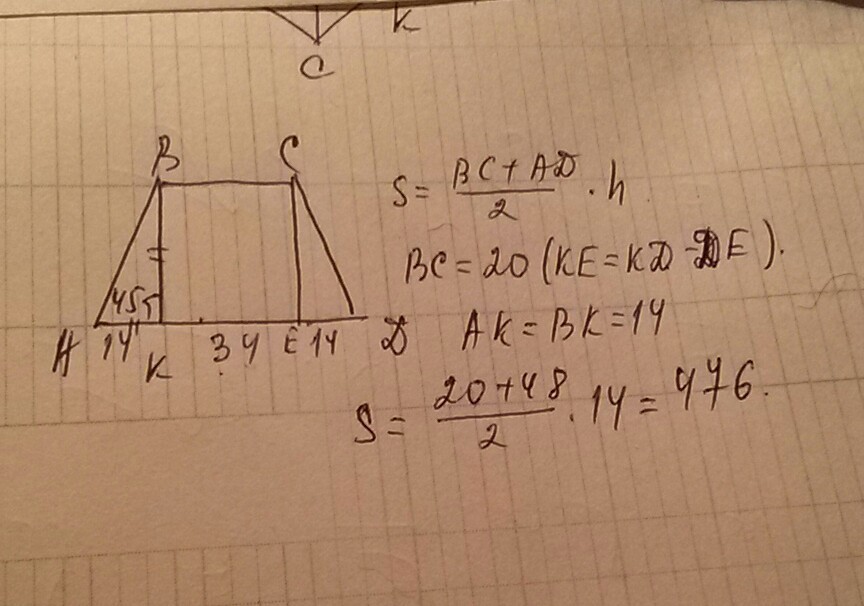 C K
B C
S = (BC + AD)/2 · h
BC = 20 (KE = KD - DE).
45
A 14 K 34 E 14 D
AK = BK = 14
S = (20 + 48)/2 · 14 = 476.